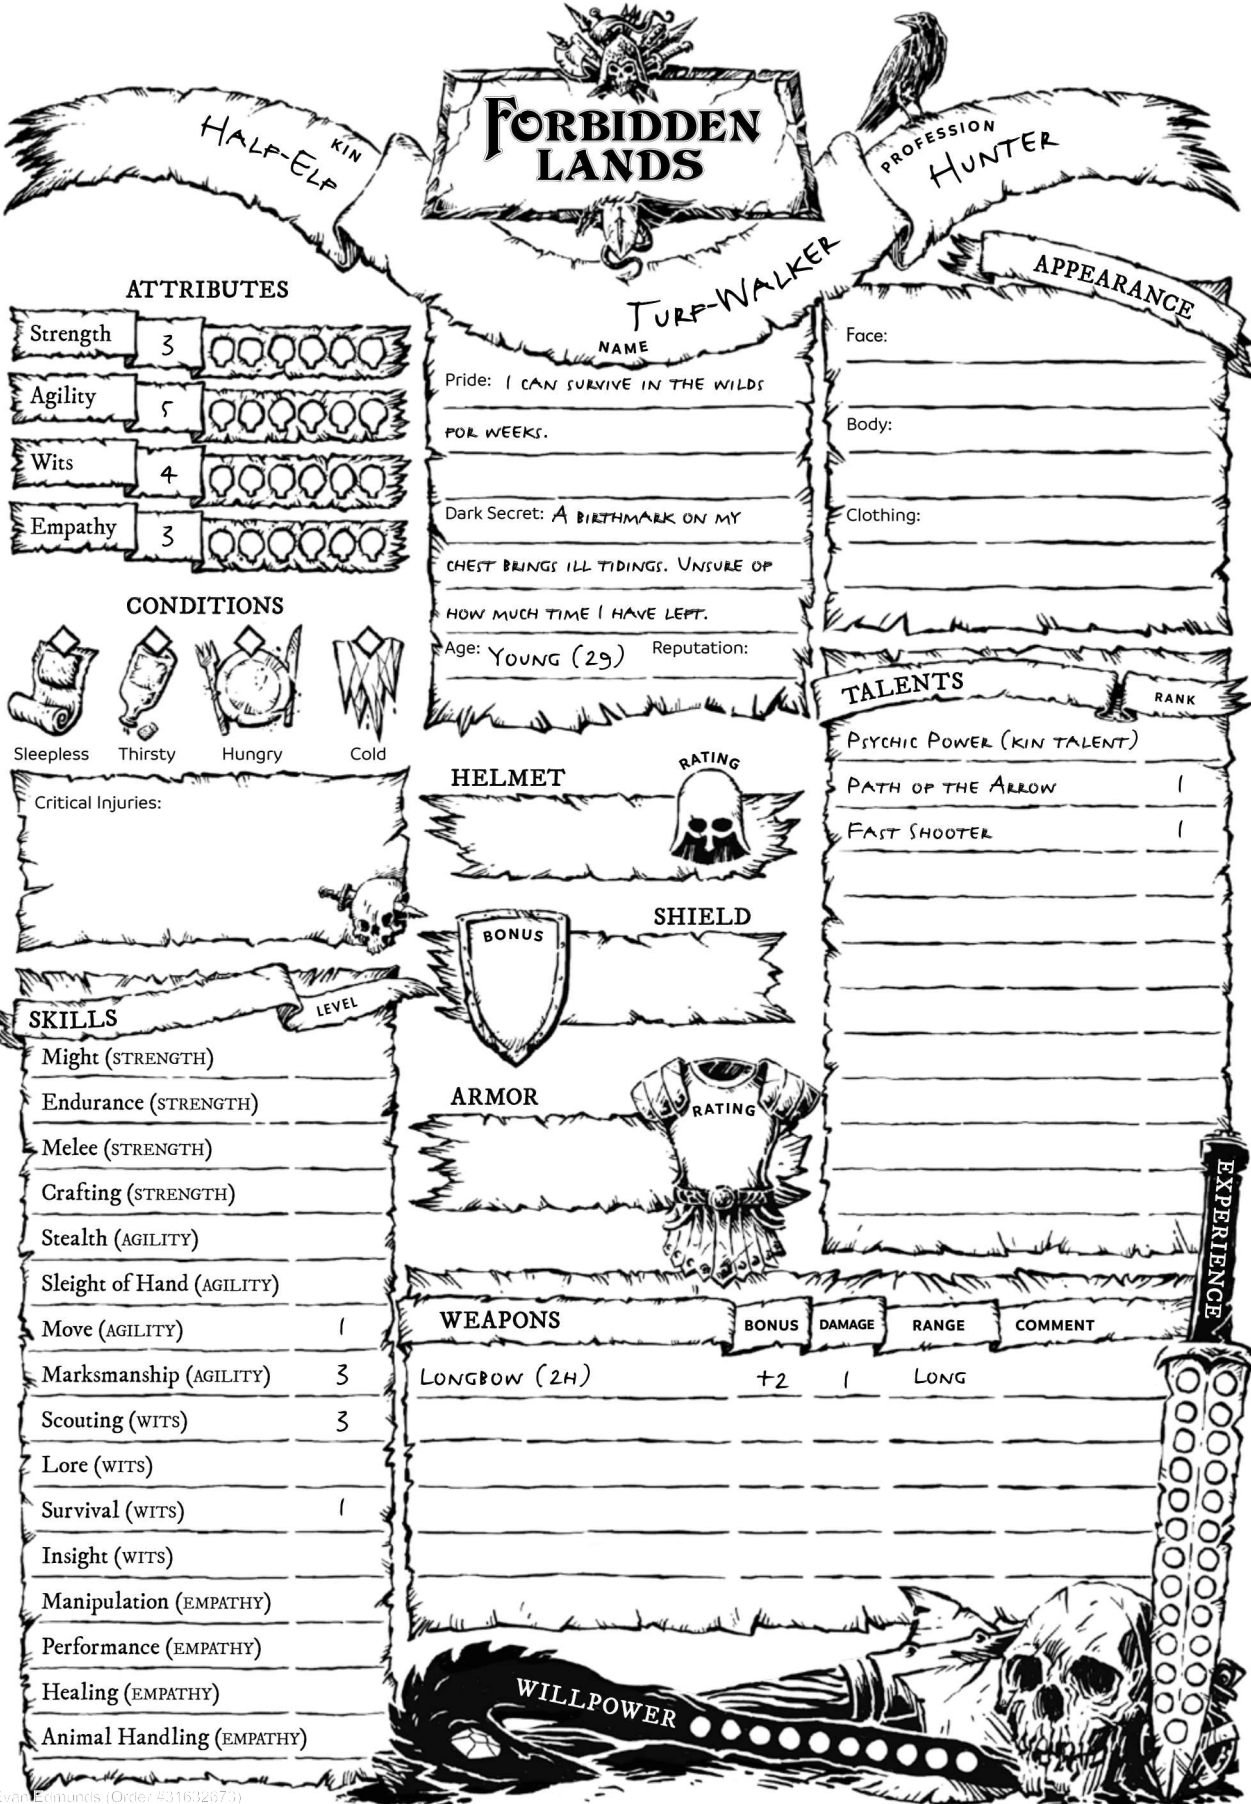 FORBIDDEN
LANDS
HALF-ELF
KIN
PROFESSION
HUNTER
TURF-WALKER
NAME
ATTRIBUTES
Strength 3
Agility 5
Wits 4
Empathy 3
CONDITIONS
Sleepless Thirsty Hungry Cold
Critical Injuries:
Pride: I CAN SURVIVE IN THE WILDS
FOR WEEKS.
Dark Secret: A BIRTHMARK ON MY
CHEST BRINGS ILL TIDINGS. UNSURE OF
HOW MUCH TIME I HAVE LEFT.
Age: YOUNG (29) Reputation:
APPEARANCE
Face:
Body:
Clothing:
TALENTS RANK
PSYCHIC POWER (KIN TALENT)
PATH OF THE ARROW 1
FAST SHOOTER 1
HELMET RATING
SHIELD
BONUS
ARMOR
RATING
SKILLS LEVEL
Might (STRENGTH)
Endurance (STRENGTH)
Melee (STRENGTH)
Crafting (STRENGTH)
Stealth (AGILITY)
Sleight of Hand (AGILITY)
Move (AGILITY) 1
Marksmanship (AGILITY) 3
Scouting (WITS) 3
Lore (WITS)
Survival (WITS) 1
Insight (WITS)
Manipulation (EMPATHY)
Performance (EMPATHY)
Healing (EMPATHY)
Animal Handling (EMPATHY)
WEAPONS BONUS DAMAGE RANGE COMMENT
LONGBOW (2H) +2 1 LONG
EXPERIENCE
WILLPOWER
Evan Edmunds (Order #31632673)